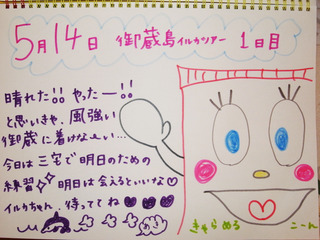 5月14日 御蔵島イルカツアー 1日目
晴れた!! やったー!!
と思いきや、風強い
御蔵に着けなーい…
今日は三宅で明日のための
練習 明日は会えるといいな
イルカちゃん、待っててね
きゃらめる こーん